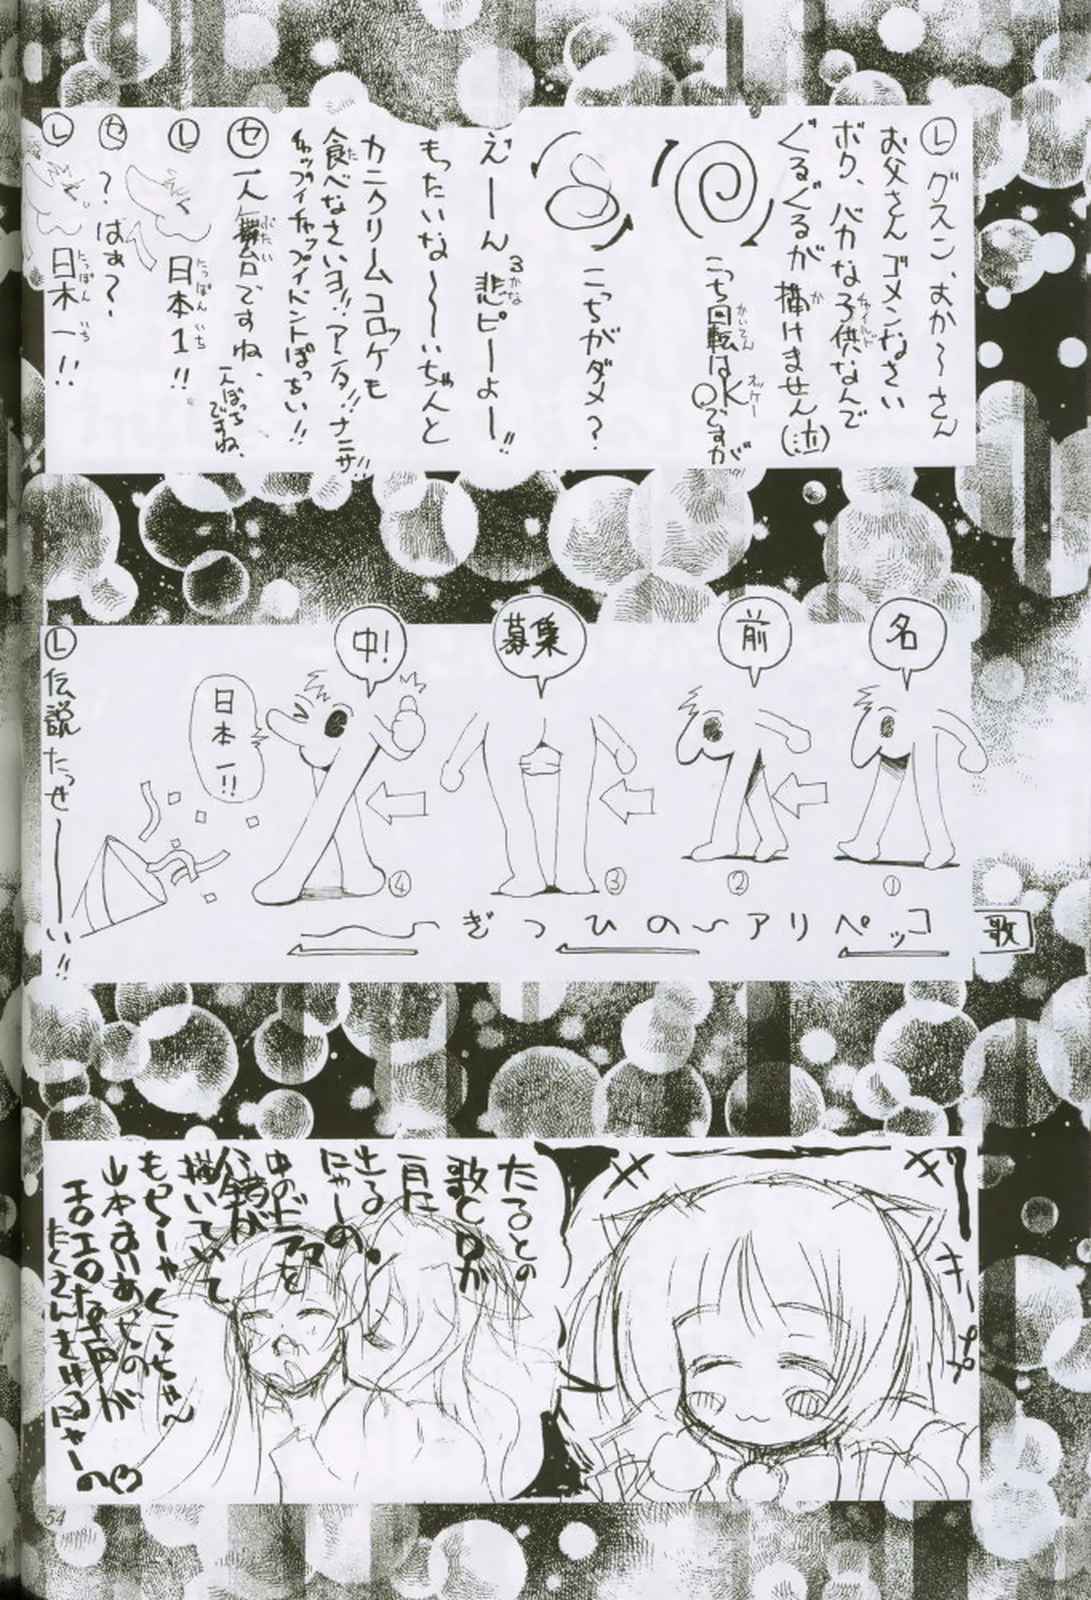 Ⓛグスン、おか〜さん
お父さんゴメンなさい
ボク、バカな子供なんで
チャイルド
ぐるぐるが描けません(泣)
か
こっち回転はOKですが
かいてん
オッケー
こっちがダメ?
えーん悲ピーよー!!
かな
もったいな〜〜いちゃんと
カニクリームコロッケも
食べなさいヨ!!アンタ!!ナニサ!!
た
Ⓢ一人舞台ですね、
ぶたい
一人ぼっちですね、
Ⓛ日本1!!
にっぽんいち
?はぁ?、
Ⓛ日本一!!
にっぽんいち
名
前
募集
中!
日本一!!
①
②
③
④
歌
コッペリア〜のひつぎ
Ⓛ伝説たっせーーい!!
キー
たるとの
歌CDが
一月に
出るにゃーの。
中のドラマを
描いていて
もらーゃくっちゃ〜
山本まりあ
エロエロな声が
たくさんきけるにゃーの
54